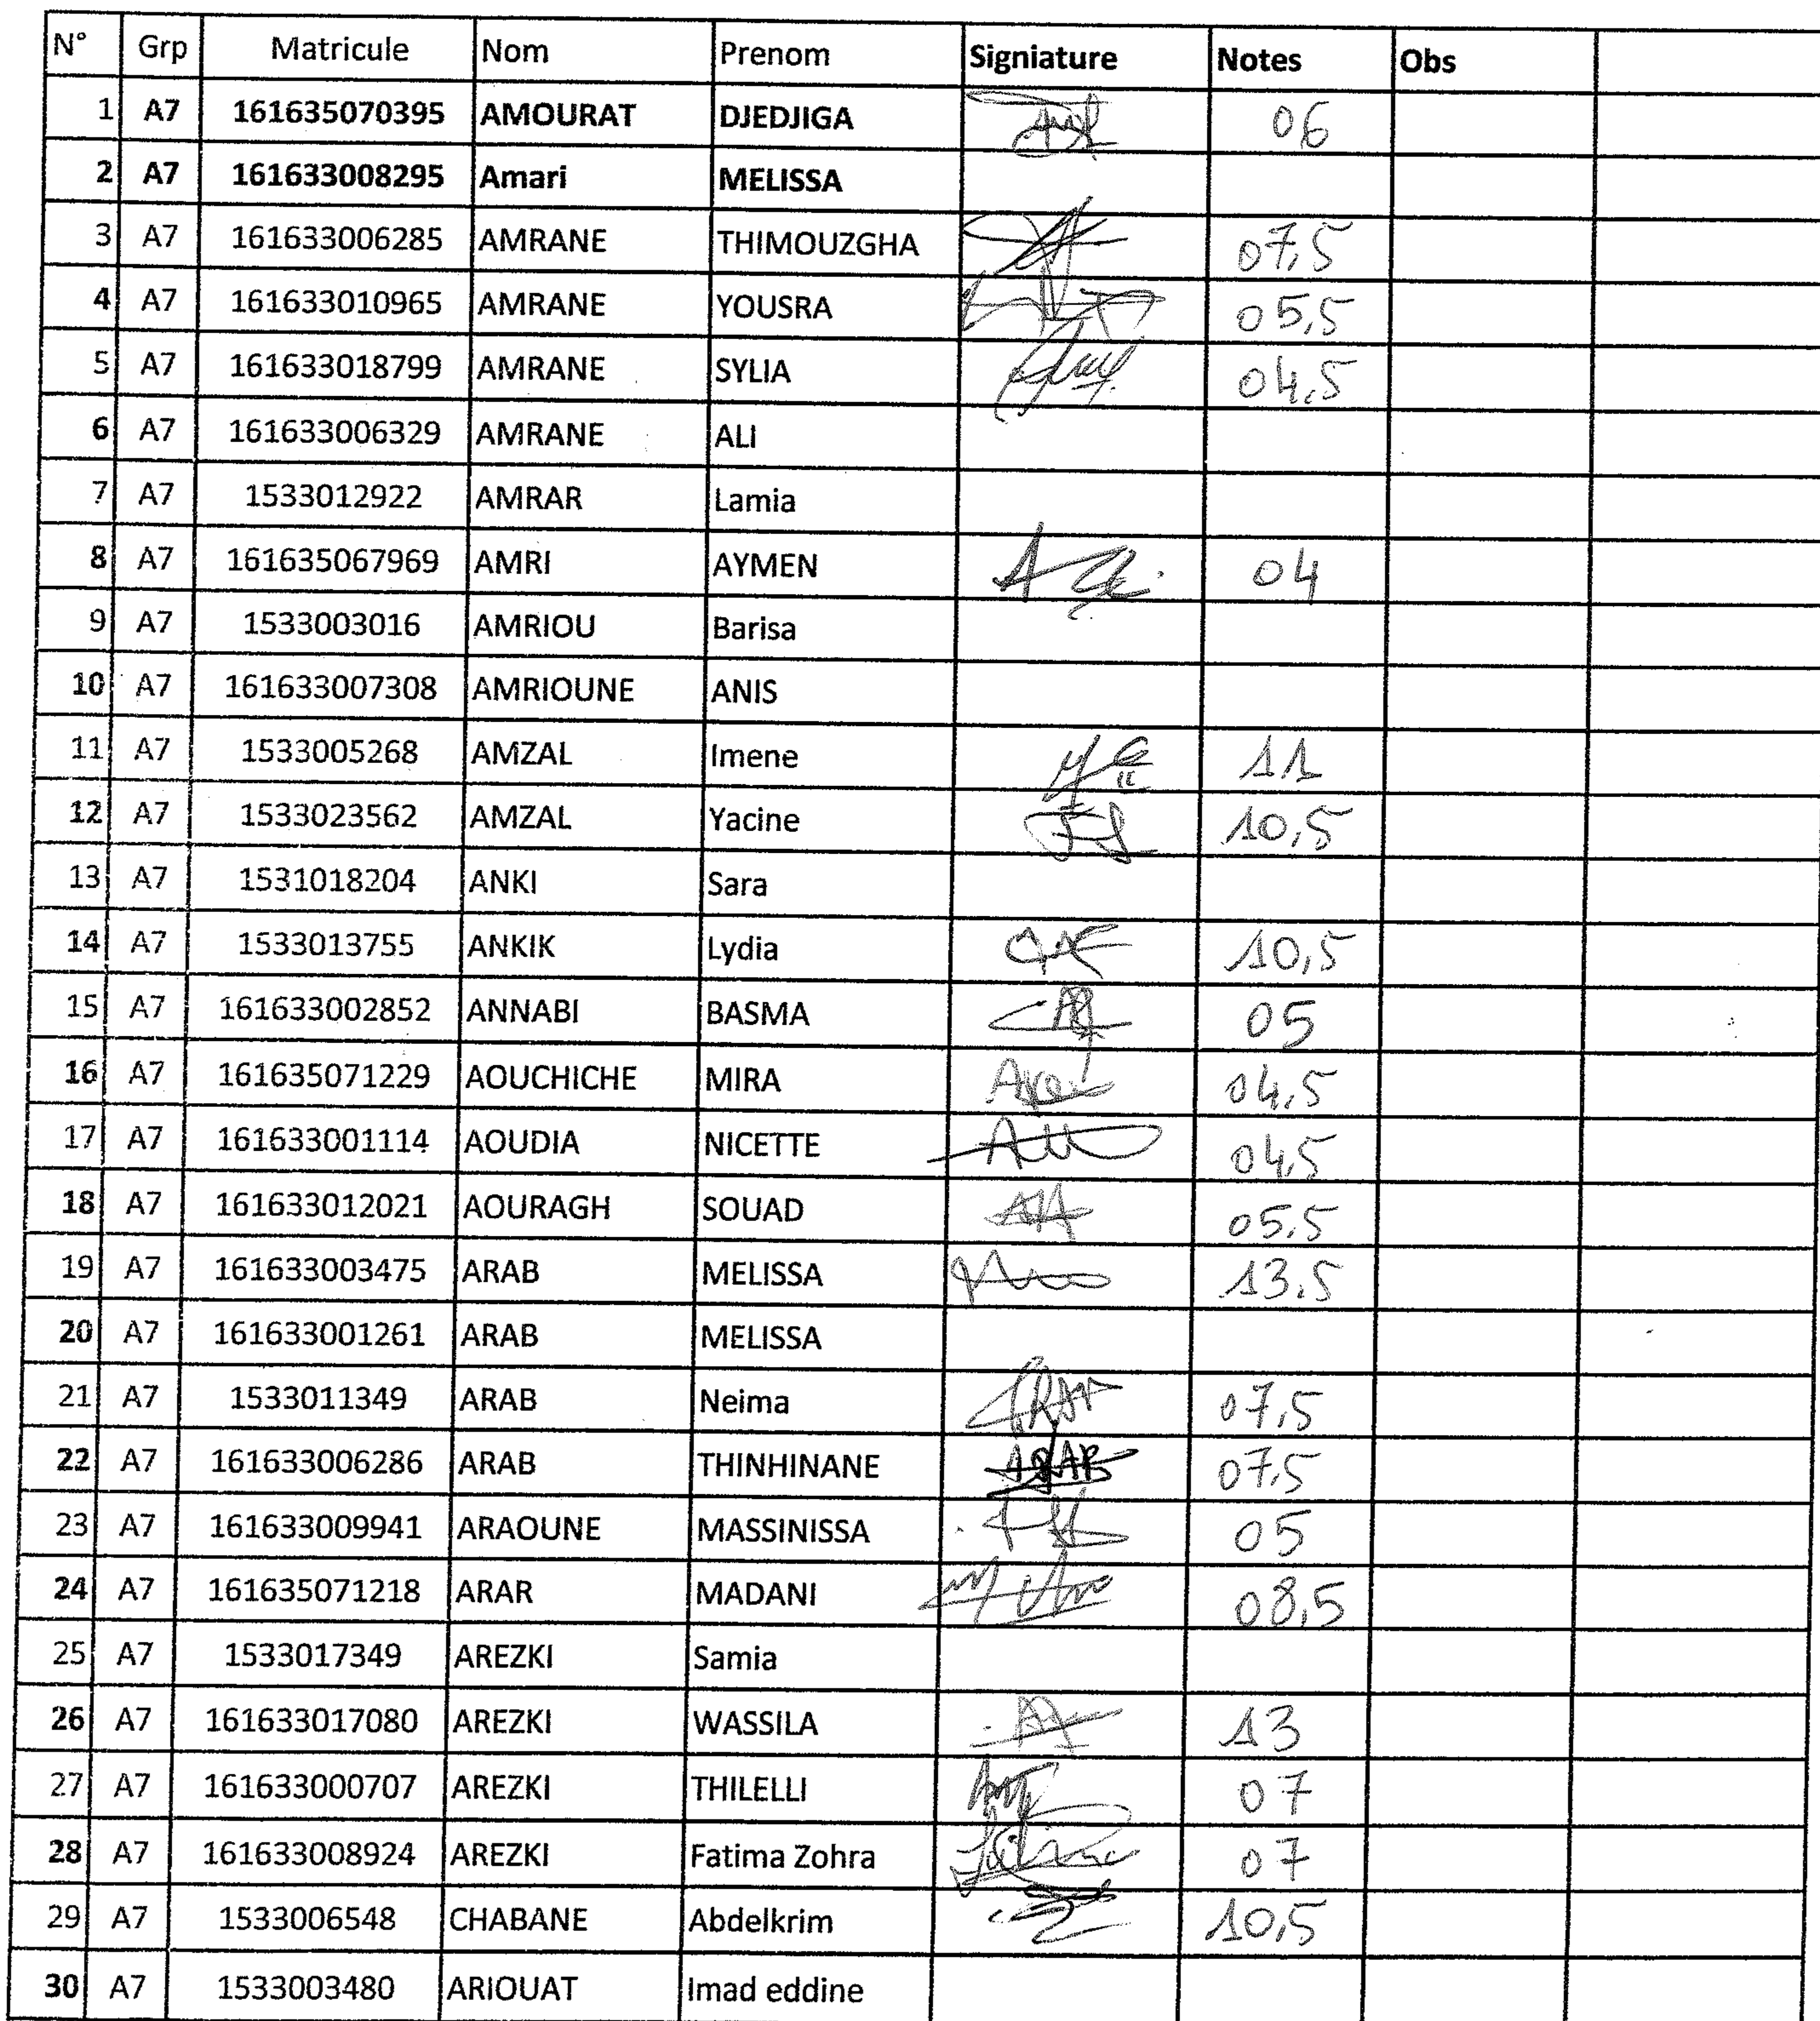 N° Grp Matricule Nom Prenom Signiature Notes Obs
1 A7 161635070395 AMOURAT DJEDJIGA 06
2 A7 161633008295 Amari MELISSA
3 A7 161633006285 AMRANE THIMOUZGHA 07,5
4 A7 161633010965 AMRANE YOUSRA 05,5
5 A7 161633018799 AMRANE SYLIA 04,5
6 A7 161633006329 AMRANE ALI
7 A7 1533012922 AMRAR Lamia
8 A7 161635067969 AMRI AYMEN 04
9 A7 1533003016 AMRIOU Barisa
10 A7 161633007308 AMRIOUNE ANIS
11 A7 1533005268 AMZAL Imene 11
12 A7 1533023562 AMZAL Yacine 10,5
13 A7 1531018204 ANKI Sara
14 A7 1533013755 ANKIK Lydia 10,5
15 A7 161633002852 ANNABI BASMA 05
16 A7 161635071229 AOUCHICHE MIRA 04,5
17 A7 161633001114 AOUDIA NICETTE 04,5
18 A7 161633012021 AOURAGH SOUAD 05,5
19 A7 161633003475 ARAB MELISSA 13,5
20 A7 161633001261 ARAB MELISSA
21 A7 1533011349 ARAB Neima 07,5
22 A7 161633006286 ARAB THINHINANE ARAB 07,5
23 A7 161633009941 ARAOUNE MASSINISSA 05
24 A7 161635071218 ARAR MADANI 08,5
25 A7 1533017349 AREZKI Samia
26 A7 161633017080 AREZKI WASSILA 13
27 A7 161633000707 AREZKI THILELLI 07
28 A7 161633008924 AREZKI Fatima Zohra 07
29 A7 1533006548 CHABANE Abdelkrim 10,5
30 A7 1533003480 ARIOUAT Imad eddine